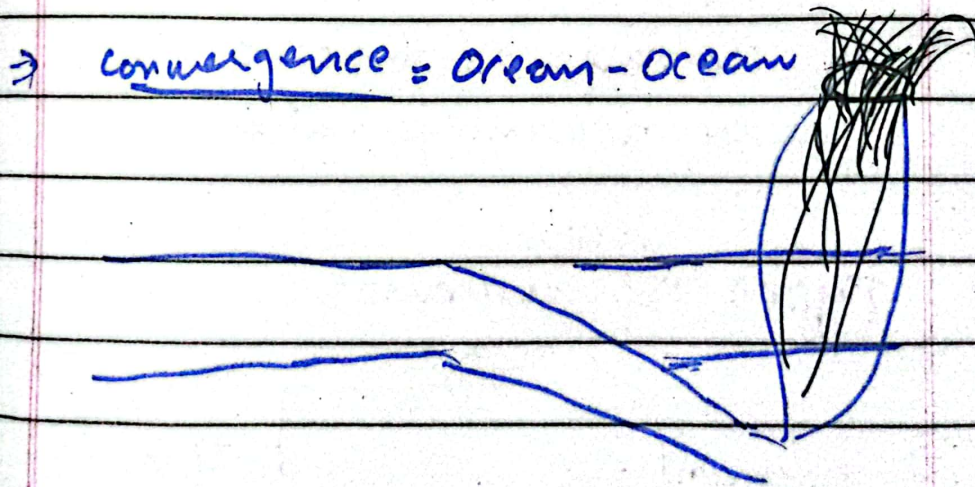 ⇒ convergence = Ocean - Ocean